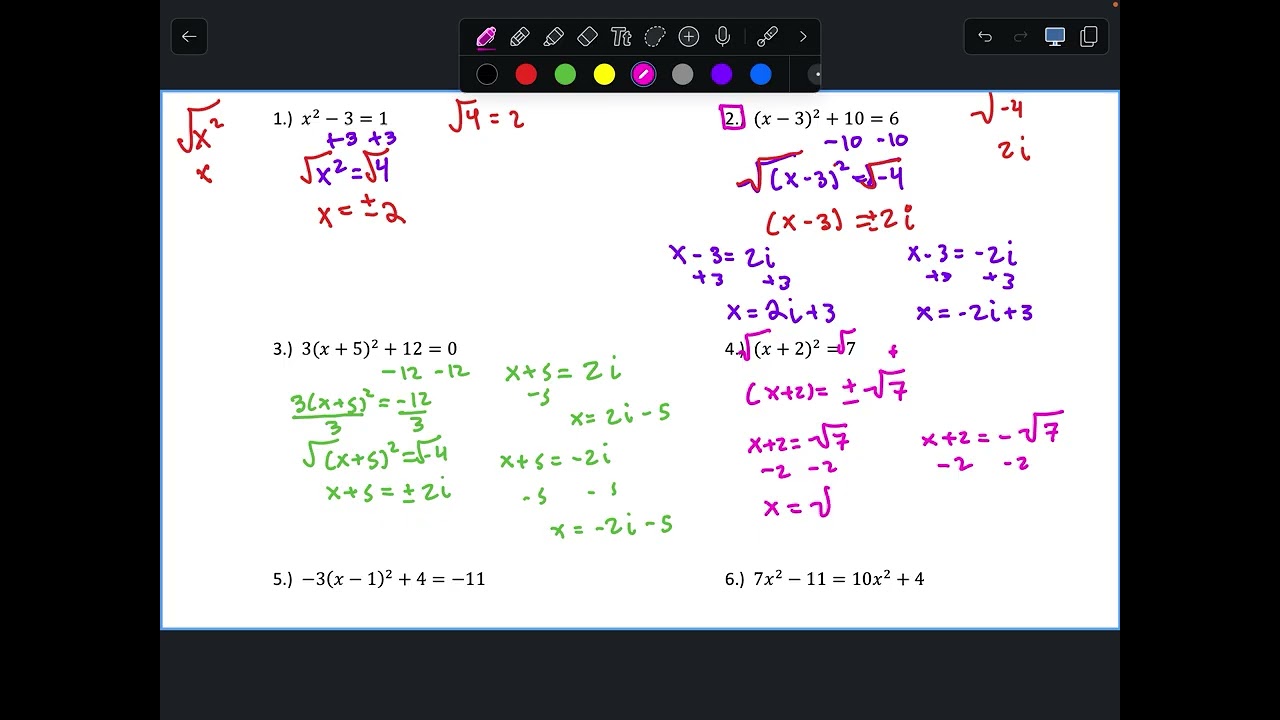 Tt
√x²
x
1.) x² − 3 = 1
+3 +3
√x² = √4
x = ± 2
√4 = 2
2.) (x − 3)² + 10 = 6
−10 −10
√(x-3)² = √-4
(x-3) = ±2i
√-4
2i
x-3 = 2i
+3 +3
x = 2i+3
x-3 = -2i
+3 +3
x = -2i+3
3.) 3(x + 5)² + 12 = 0
−12 −12
3(x+5)² = -12
3 3
√(x+5)² = √-4
x+5 = ± 2i
x+5 = 2i
-5
x = 2i - 5
x+5 = -2i
-5 -5
x = -2i - 5
4.) √(x + 2)² = √7
+
(x+2) = ± √7
x+2 = √7
-2 -2
x = √
x+2 = -√7
-2 -2
5.) −3(x − 1)² + 4 = −11
6.) 7x² − 11 = 10x² + 4